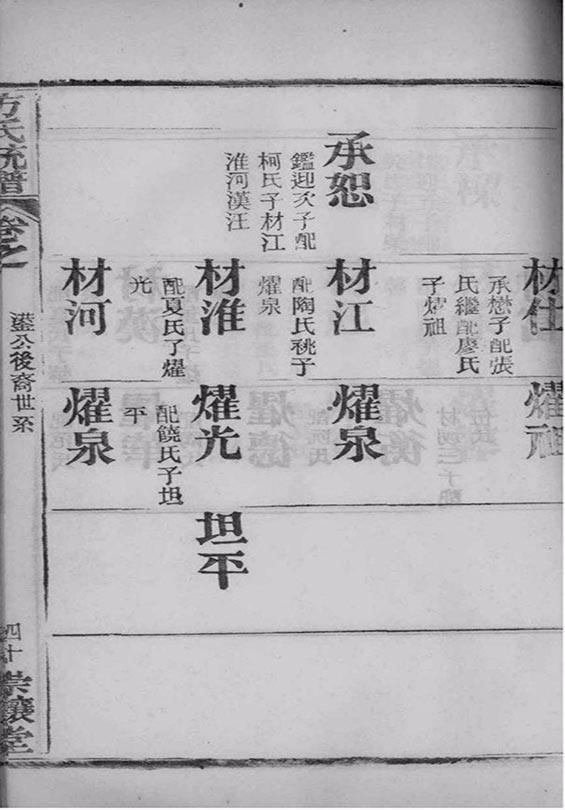 材仕
承懋子配張
氏繼配廖氏
子燿祖
燿祖
承恕
鑑迎次子配
柯氏子材江
淮河漢汪
材江
配陶氏祧子
燿泉
燿泉
材淮
配夏氏了燿
光
燿光
配饒氏子坦
平
坦平
材河
燿泉
方氏統譜
卷之
公後裔世系
四十
崇讓堂